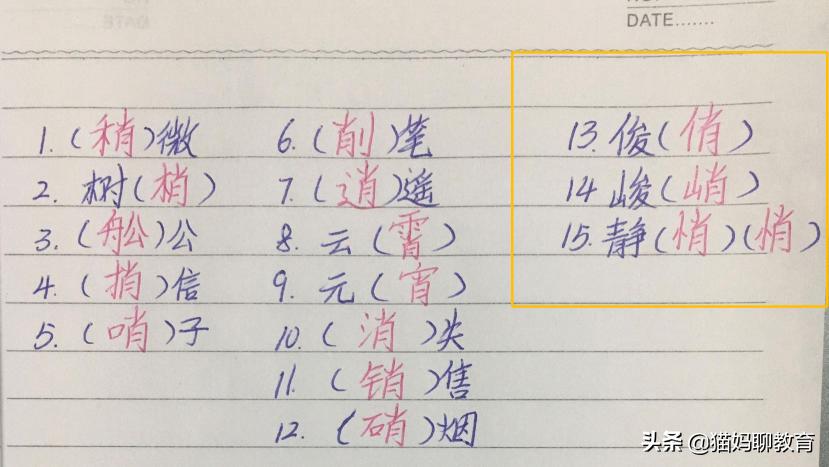 DATE.......
1. (稍)微
2. 树(梢)
3. (舩)公
4. (捎)信
5. (哨)子
6. (削)笔
7. (逍)遥
8. 云(霄)
9. 元(宵)
10. (消)失
11. (销)售
12. (硝)烟
13. 俊(俏)
14 峻(峭)
15. 静(悄)(悄)
头条 @猫妈聊教育